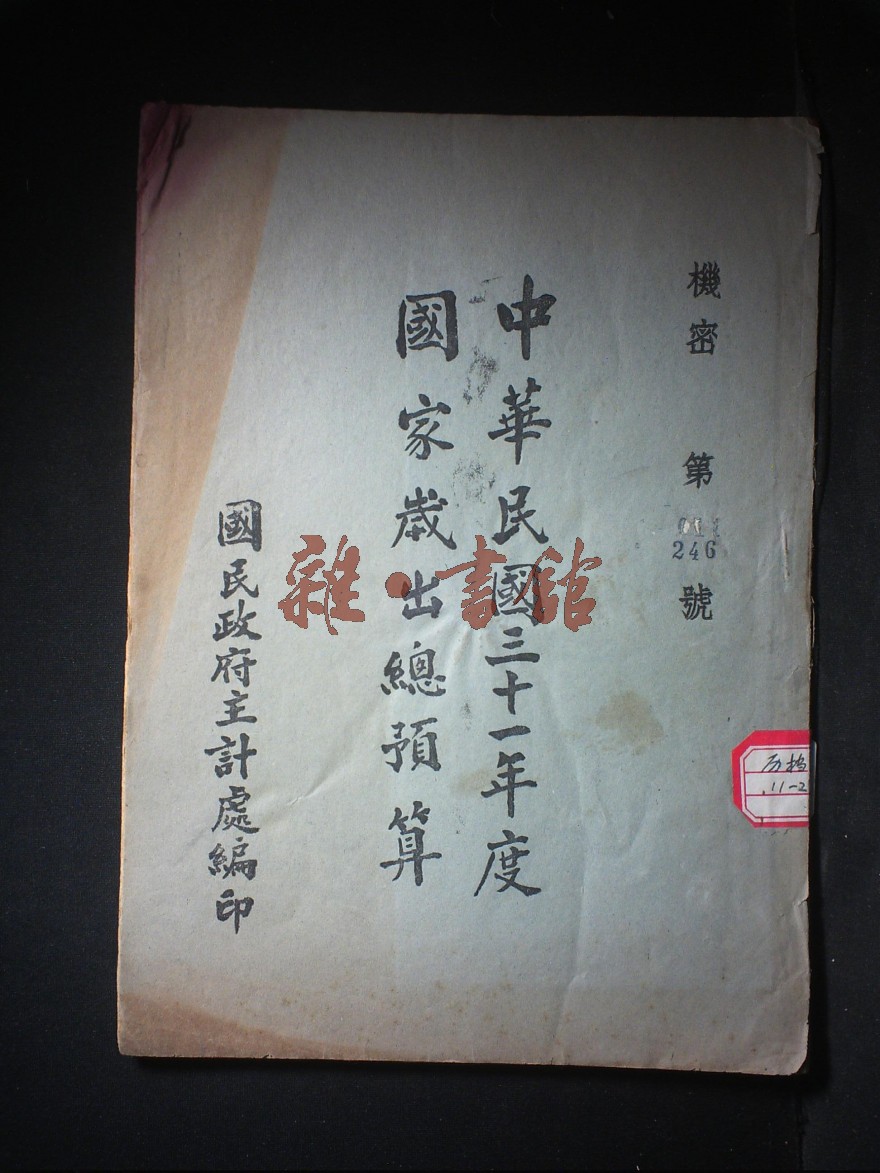 機密 第 246 號
中華民國三十一年度
國家歲出總預算
國民政府主計處編印
雜·書館
历档
11-2